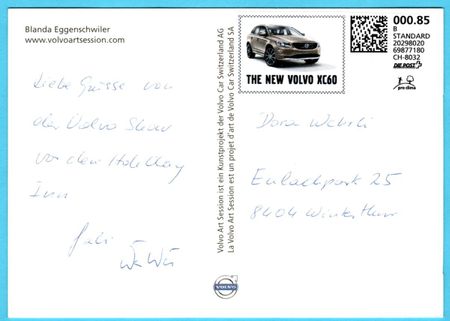 Blanda Eggenschwiler
www.volvoartsession.com
Liebe Grüsse von
der Volvo Show
vor dem
Inn
Volvo Art Session ist ein Kunstprojekt der Volvo Car Switzerland AG
La Volvo Art Session est un projet d'art de Volvo Car Switzerland SA
THE NEW VOLVO XC60
000.85
B
STANDARD
20298020
69877180
CH-8032
DIE POST
pro clima
Dora Wehrli
Eulachpark 25
8404 Winterthur
VOLVO